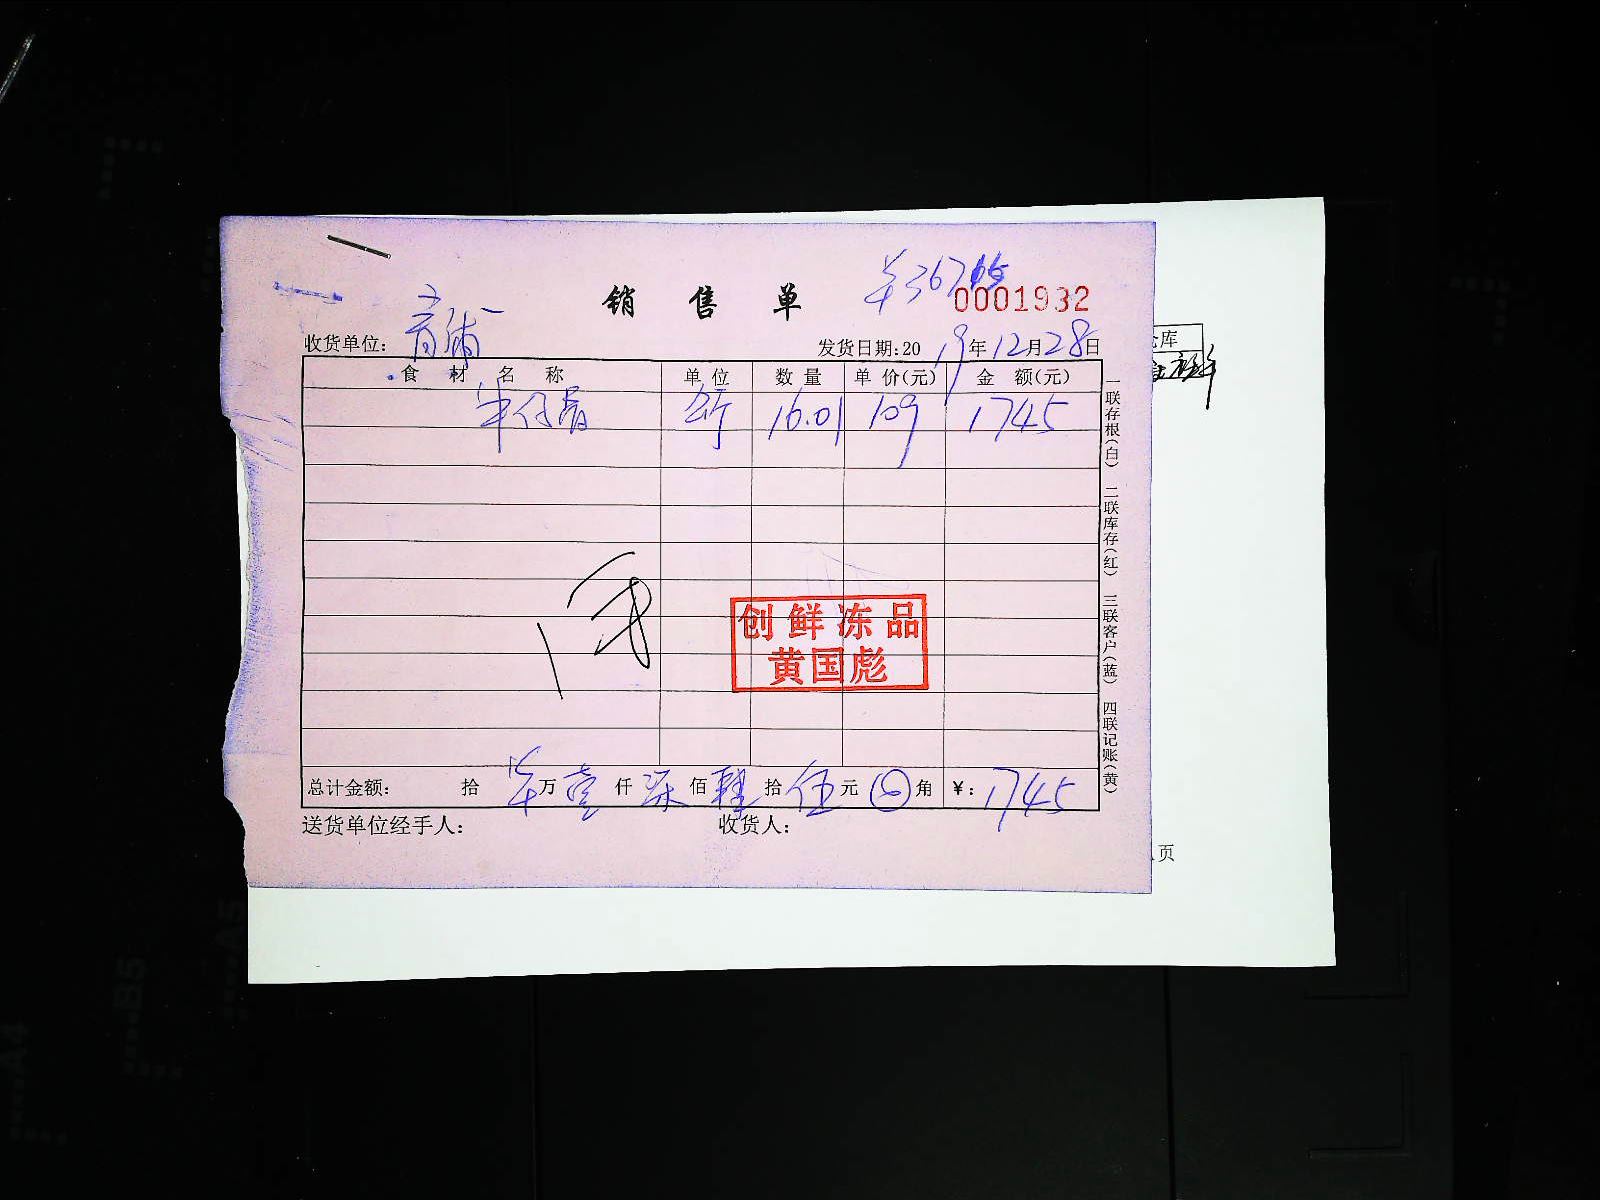 销售单
0001932
收货单位:
发货日期:2019年12月28日
仓库
食材名称 单位 数量 单价(元) 金额(元)
牛仔骨 公斤 16.01 109 1745
创鲜冻品
黄国彪
总计金额: 拾 万壹仟柒佰肆拾伍元 角 ¥:1745
送货单位经手人: 收货人:
一联存根(白) 二联库存(红) 三联客户(蓝) 四联记账(黄)
页
A5
B5
A4